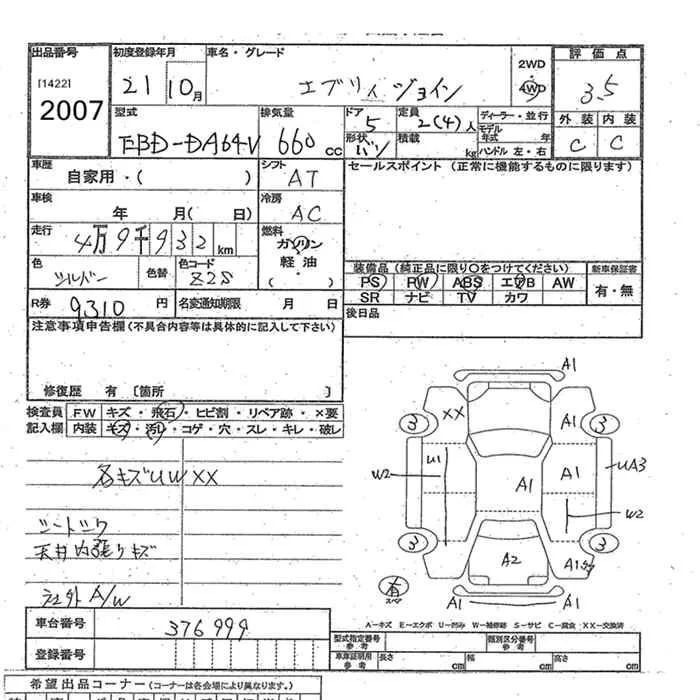 出品番号 初度登録年月 車名・グレード 2WD 評価点
[1422] 21 10月 エブリィ ジョイン 4WD 3.5
2007
型式 排気量 ドア 定員 ディーラー・並行 外装 内装
EBD-DA64V 660cc 5 2(4)人 モデル年式 年 C C
形状 バン 積載 kg ハンドル 左・右
車歴 シフト セールスポイント (正常に機能するものに限ります)
自家用・( ) AT
車検 冷房
年 月( 日) AC
走行 燃料
4万9千932km ガソリン
色 色替 色コード 軽油
シルバー Z2S ・( )
装備品 (純正品に限り○をつけてください) 新車保証書
PS PW ABS エアB AW 有・無
SR ナビ TV カワ
R券 9310円 名変通知期限 月 日
後日品
注意事項申告欄 (不具合内容等は具体的に記入して下さい)
修復歴 有 [箇所 ]
検査員 FW キズ・飛石・ヒビ割・リペア跡・×要
記入欄 内装 キズ・汚レ・コゲ・穴・スレ・キレ・破レ
各キズUWXX
天井内張りキズ
社外A/W
A1
XX A1
3 3
W2 U1 A1 A1 UA3
W2
3 3
A2 A1
A1 A1
A-キズ E-エクボ U-凹み W-補修跡 S-サビ C-腐食 XX-交換済
車台番号 376999
登録番号
型式指定番号 参考 類別区分番号 参考
車庫証明用 参考 長さ cm 幅 cm 高さ cm
希望出品コーナー (コーナーは各会場により異なります)